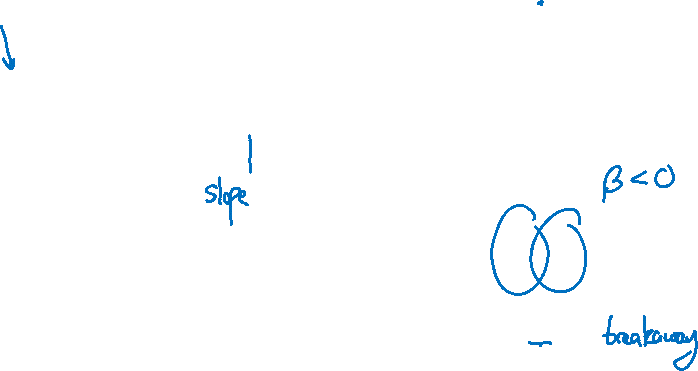 β < 0
slope
breakaway